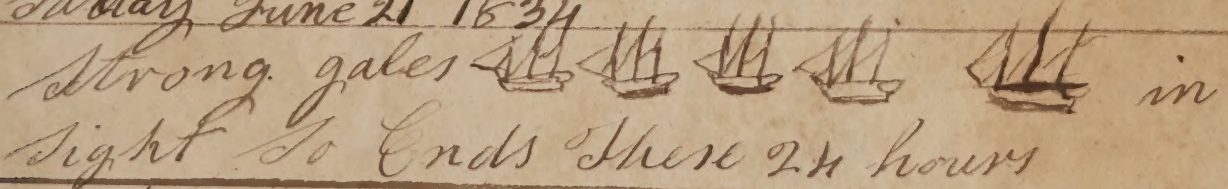 Saturday June 21 1834
Strong gales in
sight So Ends These 24 hours